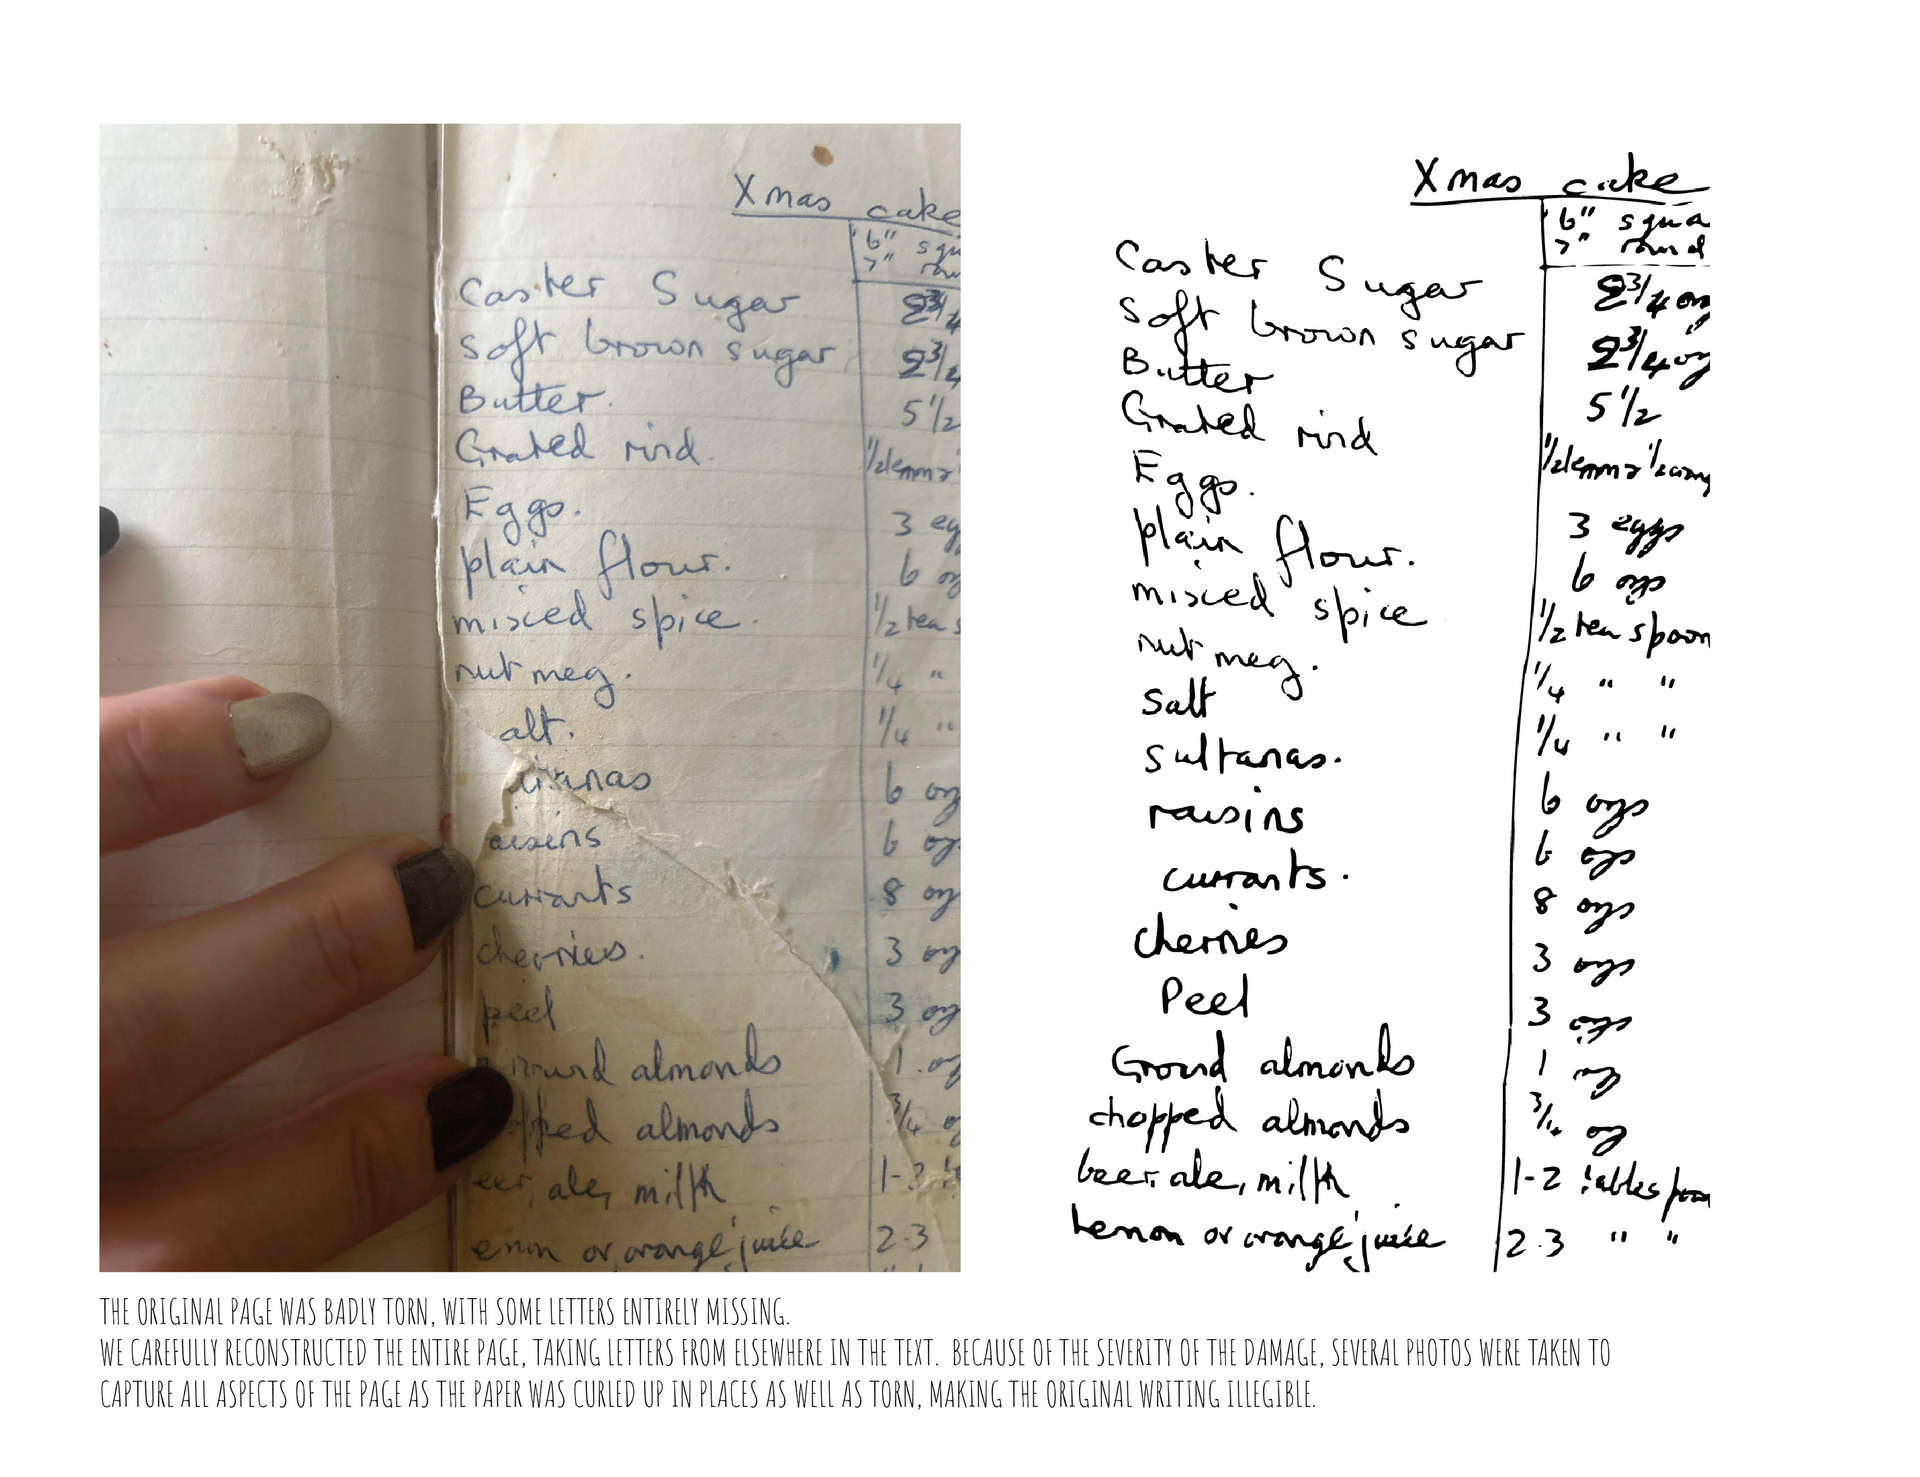 Xmas cake
'6" squ
7" roun
Caster Sugar 2 3/4
Soft brown sugar 2 3/4
Butter. 5 1/2
Grated rind. 1/2 lemon
Eggs. 3 eg
plain flour. 6 oz
mixed spice. 1/2 tea s
nutmeg. 1/4 "
alt. 1/4 "
tanas 6 oz
aisins 6 oz
currants 8 oz
cherries. 3 oz
peel 3 oz
round almonds 1 oz
pped almonds 3/4 o
eer, ale, milk
emon or orange juice 2-3
Xmas cake
'6" squa
7" round
Caster Sugar 2 3/4 oz
Soft brown sugar 2 3/4 oz
Butter 5 1/2
Grated rind 1/2 lemon 1/2 orang
Eggs. 3 eggs
plain flour. 6 ozs
mixed spice 1/2 tea spoon
nutmeg. 1/4 " "
Salt 1/4 " "
sultanas. 6 ozs
raisins 6 ozs
currants. 8 ozs
cherries 3 ozs
Peel 3 ozs
Ground almonds 1 oz
chopped almonds 3/4 oz
beer, ale, milk 1-2 tablespoon
lemon or orange juice 2-3 " "
THE ORIGINAL PAGE WAS BADLY TORN, WITH SOME LETTERS ENTIRELY MISSING.
WE CAREFULLY RECONSTRUCTED THE ENTIRE PAGE, TAKING LETTERS FROM ELSEWHERE IN THE TEXT. BECAUSE OF THE SEVERITY OF THE DAMAGE, SEVERAL PHOTOS WERE TAKEN TO
CAPTURE ALL ASPECTS OF THE PAGE AS THE PAPER WAS CURLED UP IN PLACES AS WELL AS TORN, MAKING THE ORIGINAL WRITING ILLEGIBLE.